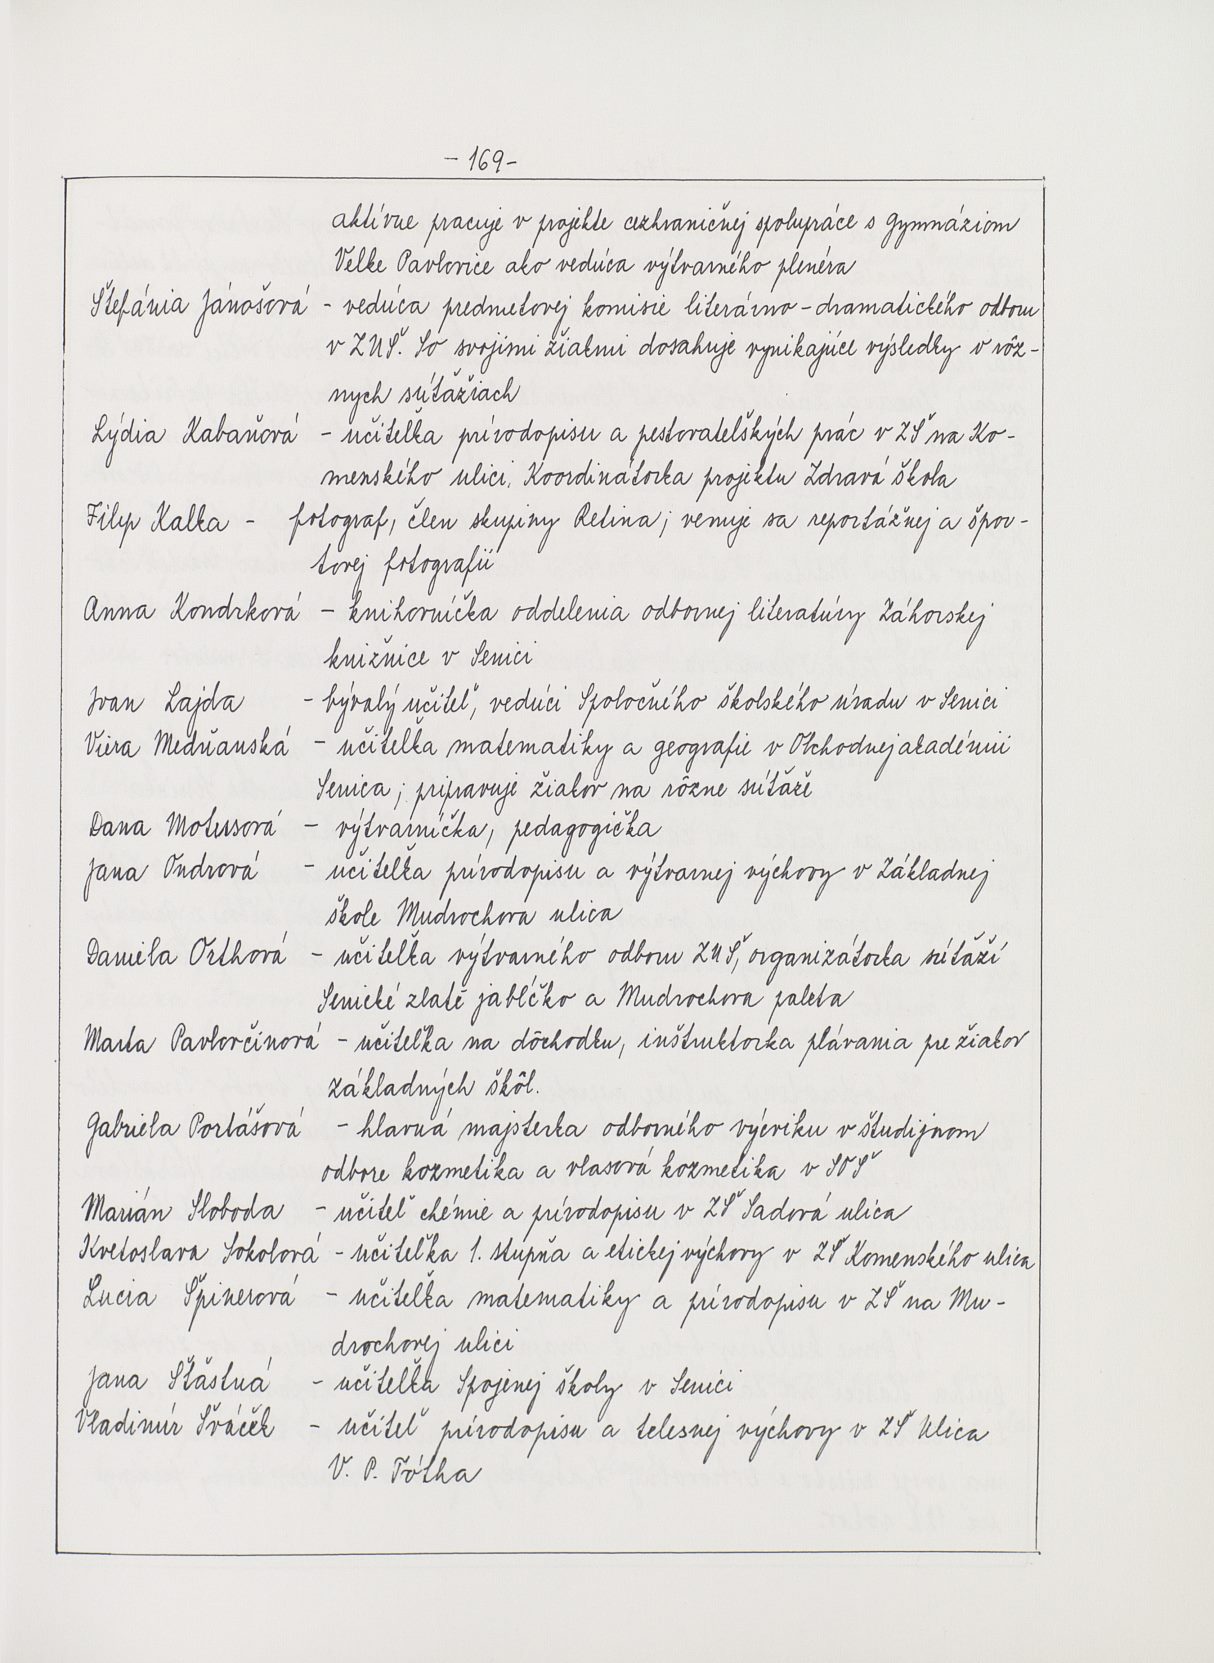 - 169 -
aktívne pracuje v projekte cezhraničnej spolupráce s Gymnáziom
Velke Pavlovice ako vedúca výtvarného plenéra
Štefánia Jánošová - vedúca predmetovej komisie literárno - dramatického odboru
v ZUŠ. So svojimi žiakmi dosahuje vynikajúce výsledky v rôz -
nych súťažiach
Lýdia Kabaňová - učiteľka prírodopisu a pestovateľských prác v ZŠ na Ko -
menského ulici, Koordinátorka projektu Zdravá škola
Filip Kalka - fotograf, člen skupiny Retina; venuje sa reportážnej a špor -
tovej fotografii
Anna Kondrková - knihovníčka oddelenia odbornej literatúry Záhorskej
knižnice v Senici
Ivan Lajda - bývalý učiteľ, vedúci Spoločného školského úradu v Senici
Viera Medňanská - učiteľka matematiky a geografie v Obchodnej akadémii
Senica; pripravuje žiakov na rôzne súťaže
Dana Motusová - výtvarníčka, pedagogička
Jana Ondrová - učiteľka prírodopisu a výtvarnej výchovy v Základnej
škole Mudrochova ulica
Daniela Orthová - učiteľka výtvarného odboru ZUŠ, organizátorka súťaží
Senické zlaté jabĺčko a Mudrochova paleta
Marta Pavlovčinová - učiteľka na dôchodku, inštruktorka plávania pre žiakov
základných škôl.
Gabriela Portášová - hlavná majsterka odborného výcviku v študijnom
odbore kozmetika a vlasová kozmetika v SOŠ
Marián Sloboda - učiteľ chémie a prírodopisu v ZŠ Sadová ulica
Kvetoslava Sokolová - učiteľka 1. stupňa a etickej výchovy v ZŠ Komenského ulica
Lucia Špinerová - učiteľka matematiky a prírodopisu v ZŠ na Mu -
drochovej ulici
Jana Šťastná - učiteľka Spojenej školy v Senici
Vladimír Šváček - učiteľ prírodopisu a telesnej výchovy v ZŠ Ulica
V. P. Tótha